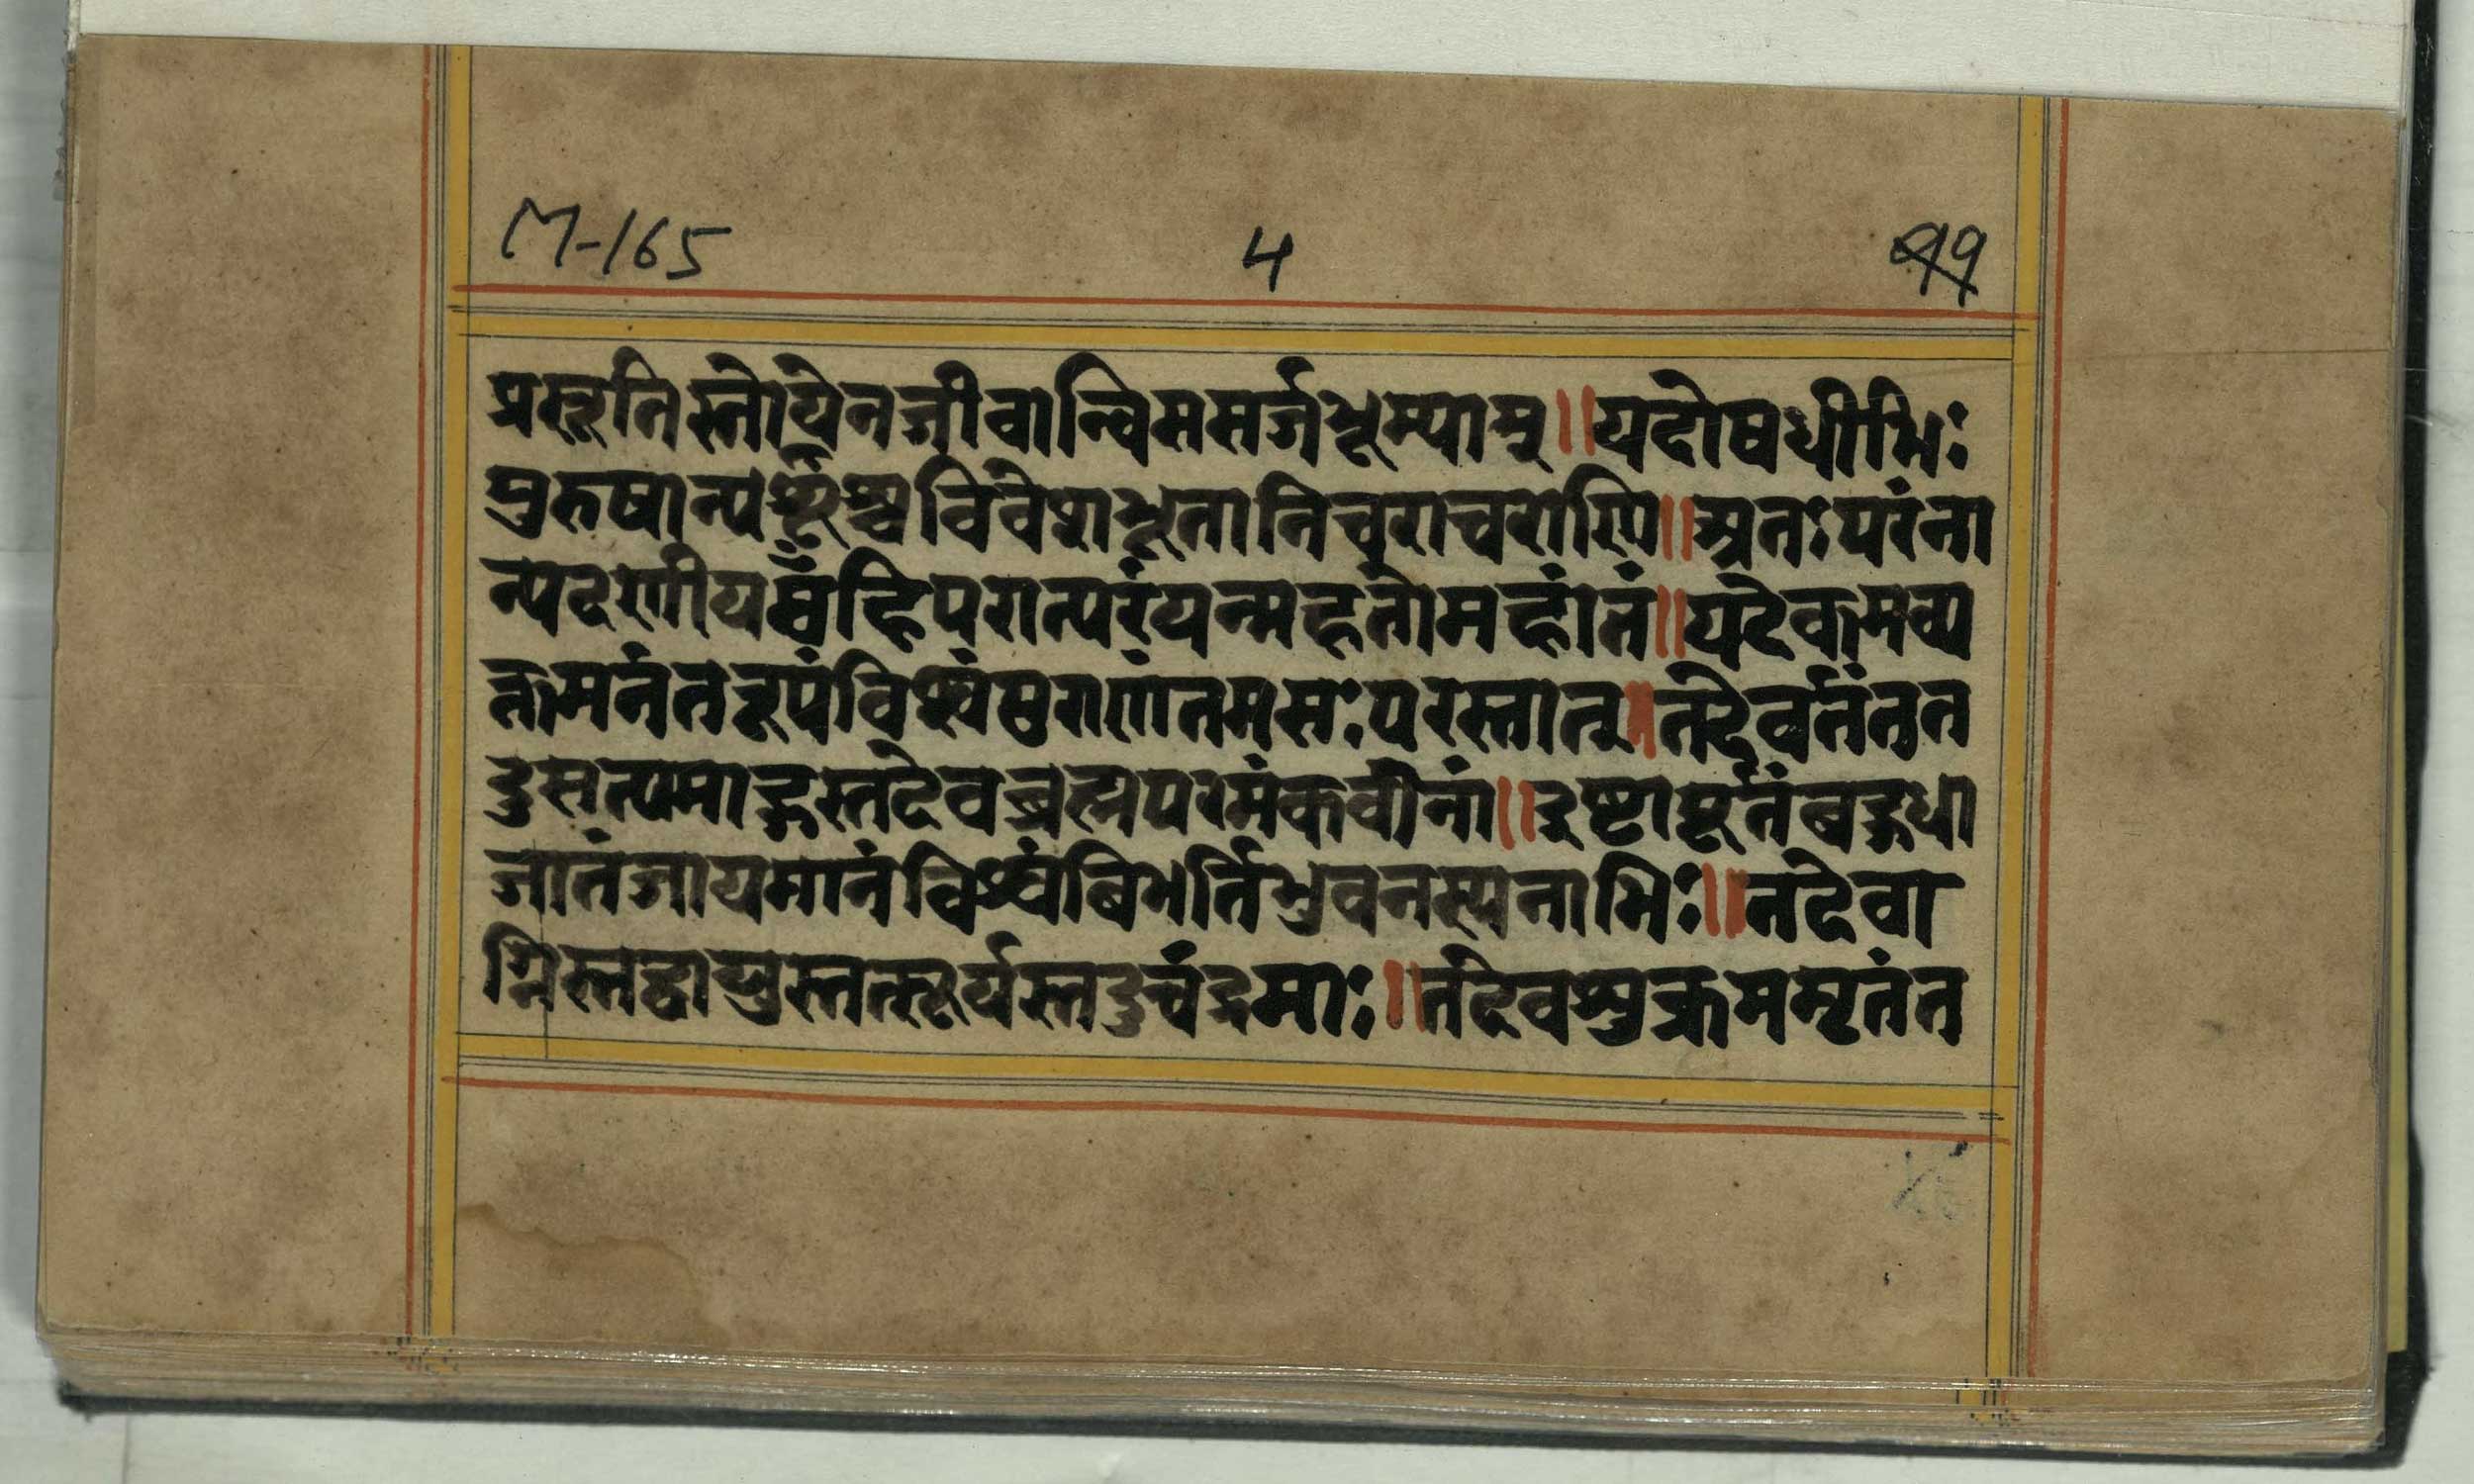 M-165 4 99
प्रसूतिस्तोयेनजीवान्विमसर्जभूम्याम्॥यदोषधीभिः
पुरुषान्पशूँश्चविवेशभूतानिचराचराणि॥अतःपरंना
न्यदणीयसँहिपरात्परंयन्महतोमहांतं॥यदेकमव्य
क्तमनंतरूपंविश्वंपुराणंतमसःपरस्तात्॥तदेवर्तंत
दुसत्यमाहुस्तदेवब्रह्मपरमंकवीनां॥इष्टापूर्तंबहुधा
जातंजायमानंविश्वंबिभर्तिभुवनस्यनाभिः॥तदेवा
ग्निस्तद्वायुस्तत्सूर्यस्तदुचंद्रमाः॥तदेवशुक्रममृतंत